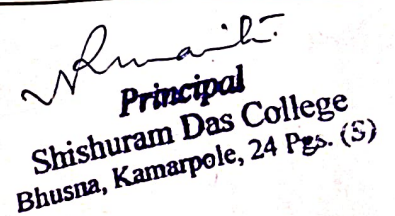 Principal
Shishuram Das College
Bhusna, Kamarpole, 24 Pgs. (S)